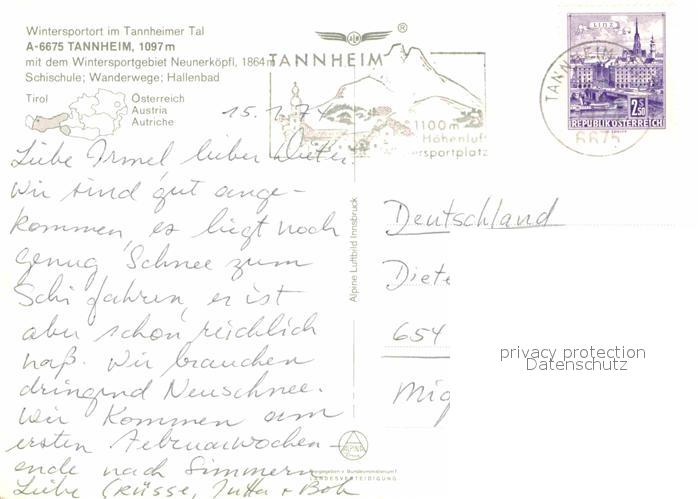 Wintersportort im Tannheimer Tal
A-6675 TANNHEIM, 1097 m
mit dem Wintersportgebiet Neunerköpfl, 1864 m
Schischule; Wanderwege; Hallenbad
Tirol
Österreich
Austria
Autriche
®
TANNHEIM
1100 m
Höhenluft
ersportplatz
LINZ
2.50
REPUBLIK ÖSTERREICH
TANNHEIM
6675
15.1.74
Liebe Irmel, lieber Dieter
Wir sind gut ange-
kommen, es liegt noch
genug Schnee zum
Schi fahren, er ist
aber schon reichlich
naß. Wir brauchen
dringend Neuschnee.
Wir kommen am
ersten Februarwochen-
ende nach Simmern
Liebe Grüsse, Jutta + Bob
Alpine Luftbild Innsbruck
ALPINE
Freigegeben v. Bundesministerium f.
LANDESVERTEIDIGUNG
Deutschland
Diete
654
Mig
privacy protection
Datenschutz